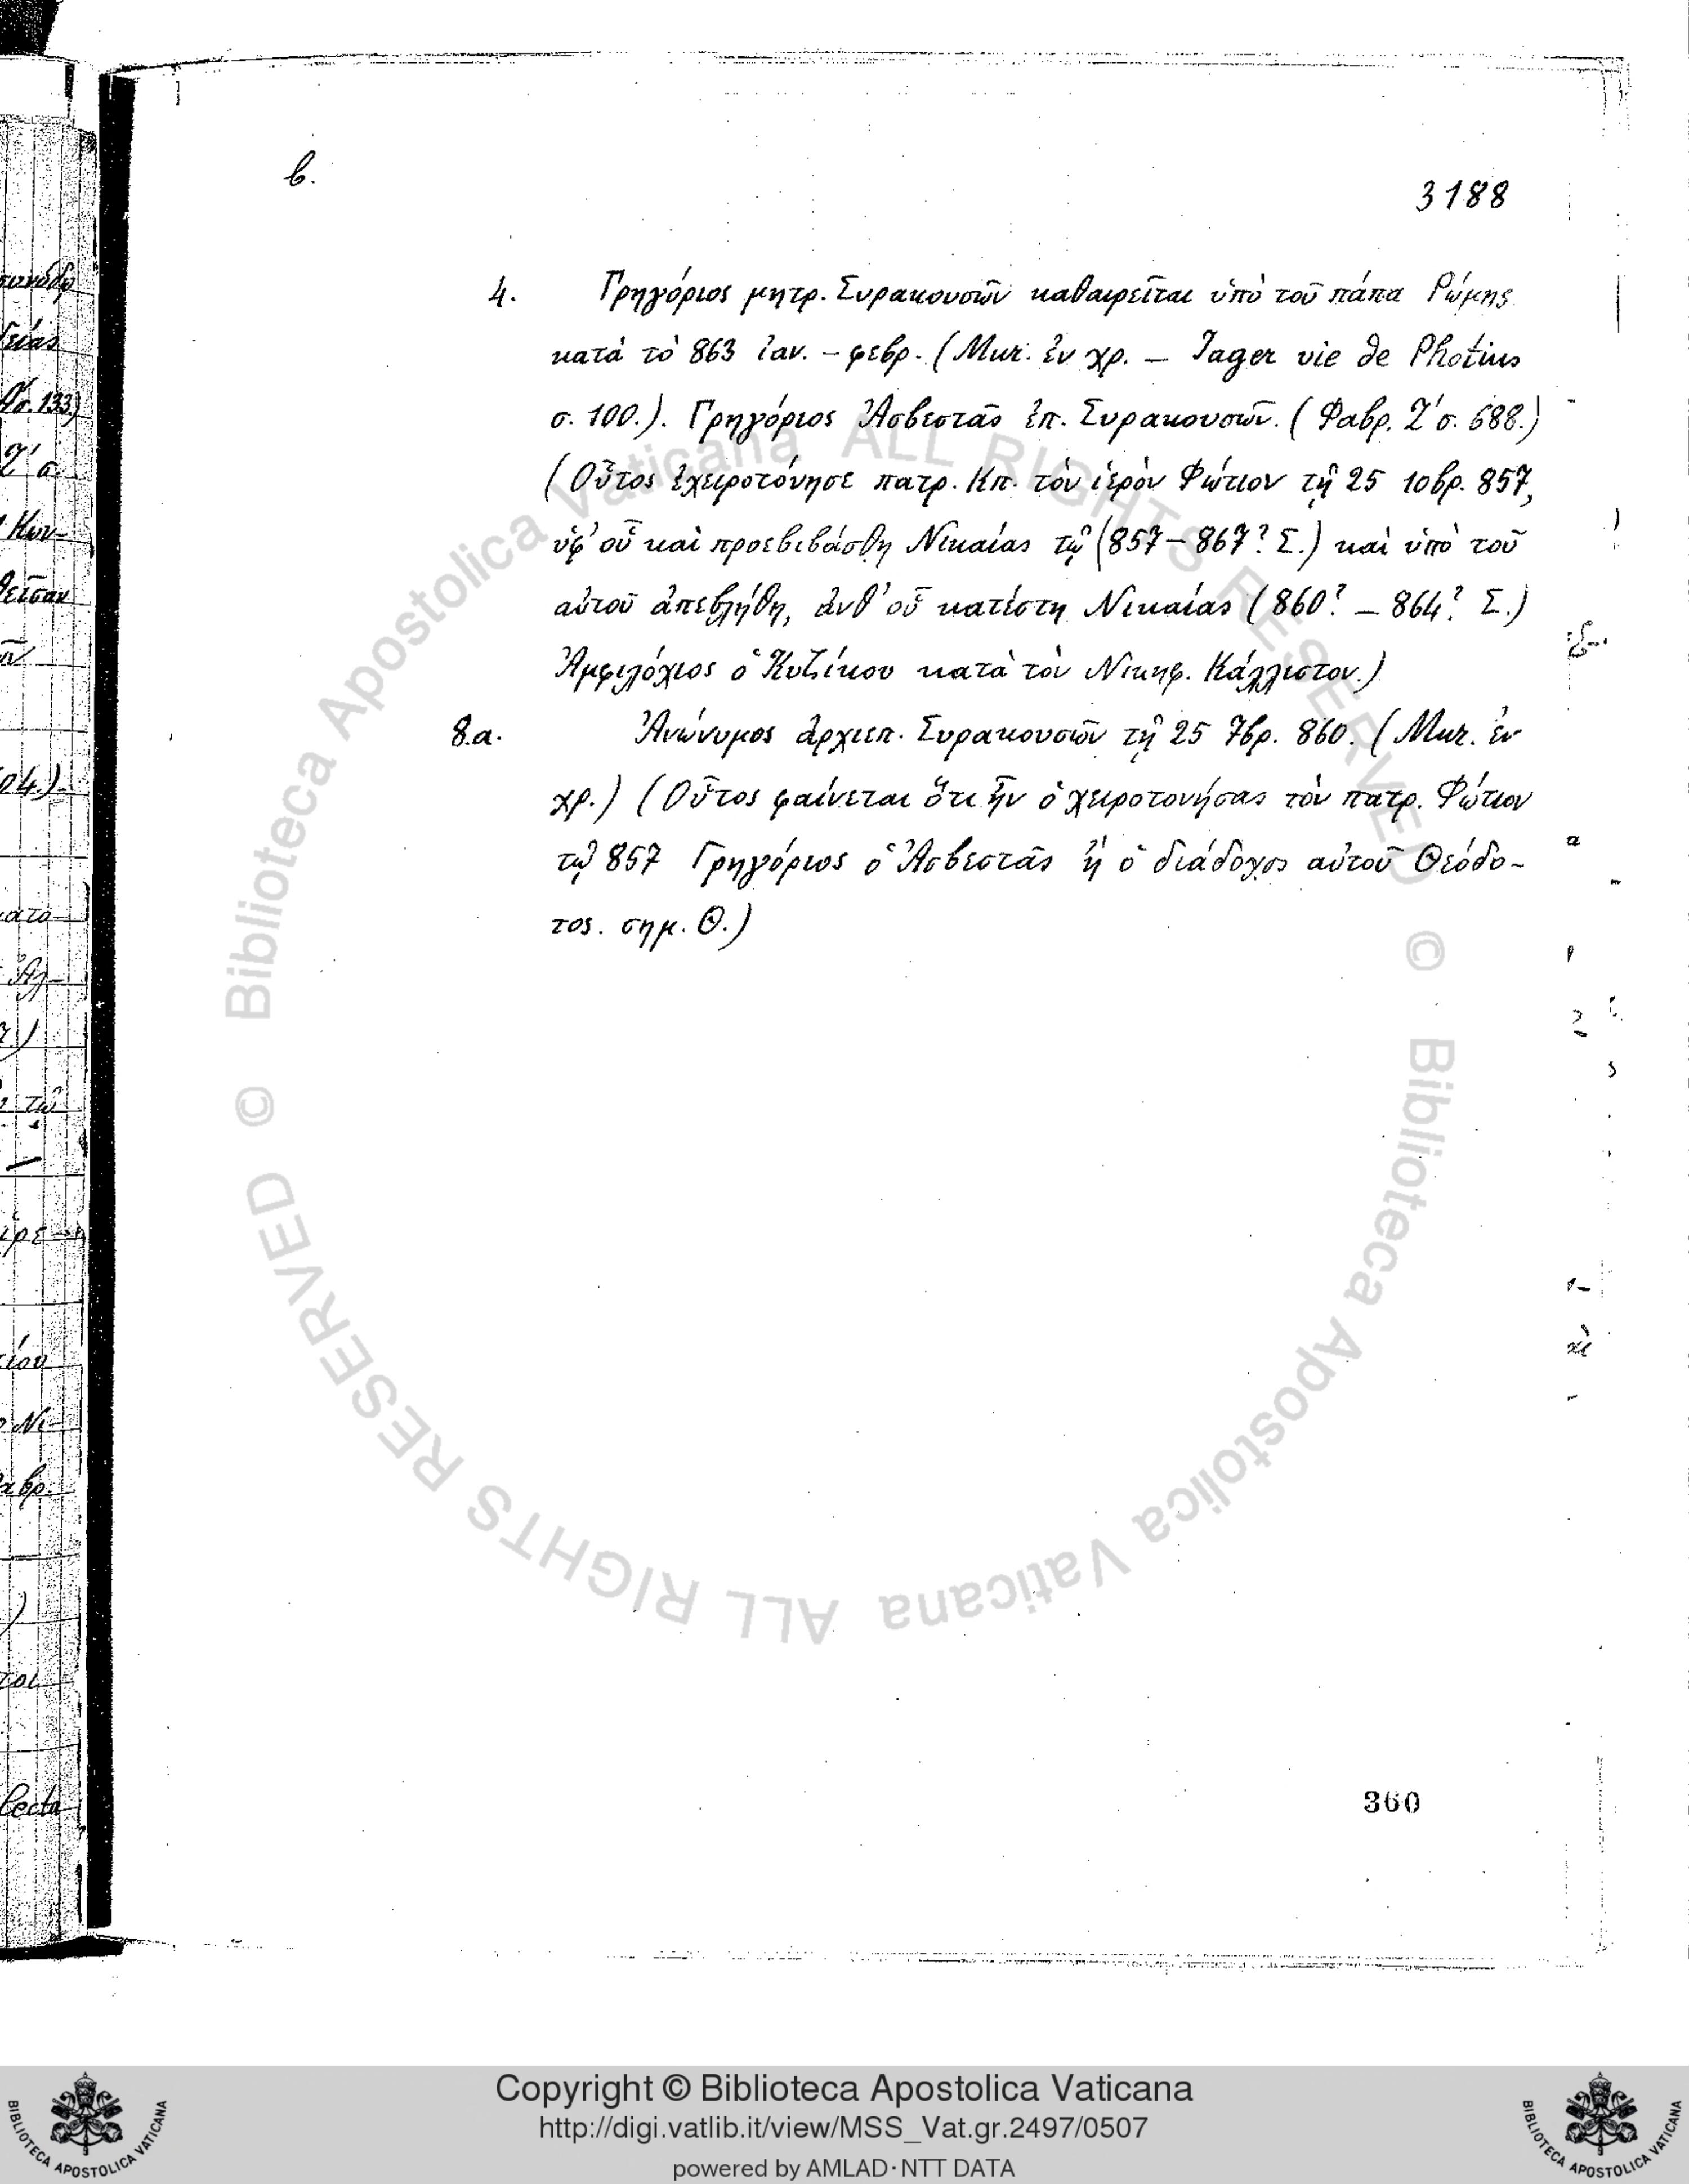 β.
3188
4. Γρηγόριος μητρ. Συρακουσῶν καθαιρεῖται ὑπὸ τοῦ πάπα Ῥώμης
κατὰ τὸ 863 ἰαν. – φεβρ. (Μυρ. ἐν χρ. – Jager vie de Photius
σ. 100.). Γρηγόριος Ἀσβεστᾶς ἐπ. Συρακουσῶν. (Φαβρ. Ζ' σ. 688.)
(Οὗτος ἐχειροτόνησε πατρ. Κπ. τὸν ἱερὸν Φώτιον τῇ 25 10βρ. 857,
ὑφ' οὗ καὶ προεβιβάσθη Νικαίας τῷ (857 – 867? Σ.) καὶ ὑπὸ τοῦ
αὐτοῦ ἀπεβλήθη, ἀνθ' οὗ κατέστη Νικαίας (860? – 864? Σ.)
Ἀμφιλόχιος ὁ Κυζίκου κατὰ τὸν Νικηφ. Κάλλιστον.)
8.α. Ἀνώνυμος ἀρχιεπ. Συρακουσῶν τῇ 25 7βρ. 860. (Μυρ. ἐν
χρ.) (Οὗτος φαίνεται ὅτι ἦν ὁ χειροτονήσας τὸν πατρ. Φώτιον
τῷ 857 Γρηγόριος ὁ Ἀσβεστᾶς ἢ ὁ διάδοχος αὐτοῦ Θεόδο-
τος. σημ. Θ.)
360
© Biblioteca Apostolica Vaticana ALL RIGHTS RESERVED
© Biblioteca Apostolica Vaticana ALL RIGHTS RESERVED
Copyright © Biblioteca Apostolica Vaticana
http://digi.vatlib.it/view/MSS_Vat.gr.2497/0507
powered by AMLAD·NTT DATA
BIBLIOTECA APOSTOLICA VATICANA
BIBLIOTECA APOSTOLICA VATICANA